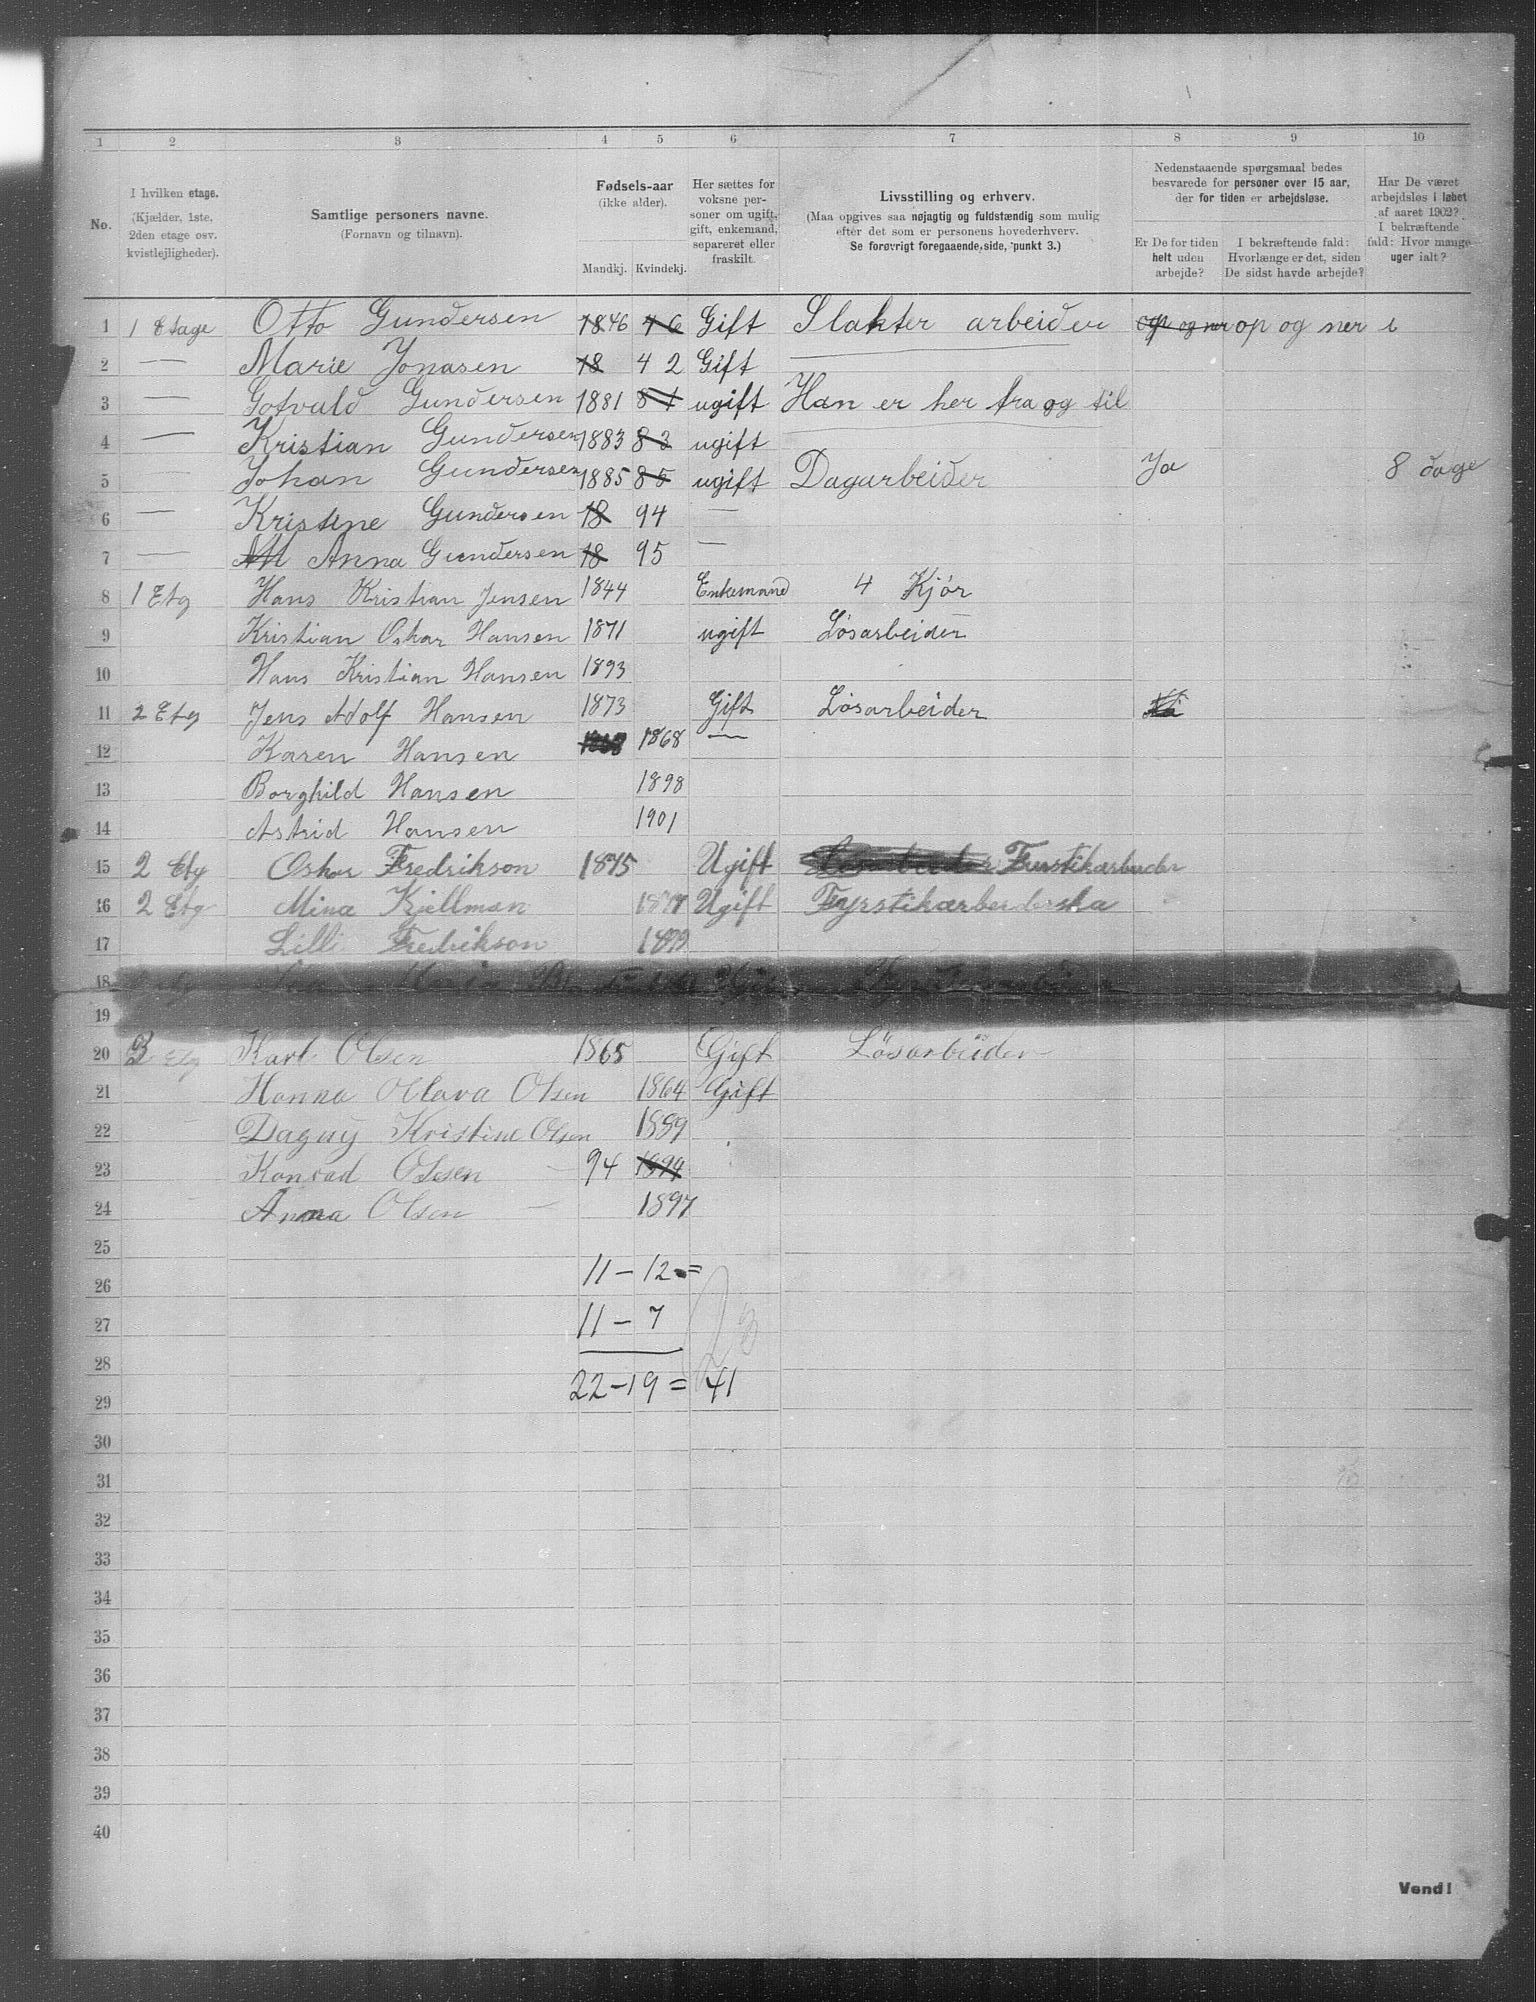 1 2 3 4 5 6 7 8 9 10
No.
I hvilken etage.
(Kjælder, 1ste,
2den etage osv.
kvistlejligheder).
Samtlige personers navne.
(Fornavn og tilnavn).
Fødsels-aar
(ikke alder).
Mandkj. Kvindekj.
Her sættes for
voksne per-
soner om ugift,
gift, enkemand,
separeret eller
fraskilt.
Livsstilling og erhverv.
(Maa opgives saa nøjagtig og fuldstændig som mulig
efter det som er personens hovederhverv.
Se forøvrigt foregaaende side, punkt 3.)
Nedenstaaende spørgsmaal bedes
besvarede for personer over 15 aar,
der for tiden er arbejdsløse.
Er De for tiden
helt uden
arbejde?
I bekræftende fald:
Hvorlænge er det, siden
De sidst havde arbejde?
Har De været
arbejdsløs i løbet
af aaret 1902?
I bekræftende
fald: Hvor mange
uger ialt?
1 1 Etage Otto Gundersen 1846 46 Gift Slakter arbeider op og ner op og ner i
2 — Marie Jonasen 18 42 Gift
3 — Gotvald Gundersen 1881 81 ugift Han er her fra og til
4 — Kristian Gundersen 1883 83 ugift
5 — Johan Gundersen 1885 85 ugift Dagarbeider Ja 8 dage
6 — Kristine Gundersen 18 94 —
7 — Anna Gundersen 18 95 —
8 1 Etg Hans Kristian Jensen 1844 Enkemand 4 Kjør
9 Kristian Oskar Hansen 1871 ugift Løsarbeider
10 Hans Kristian Hansen 1893
11 2 Etg Jens Adolf Hansen 1873 Gift Løsarbeider
12 Karen Hansen 1868 1868 —
13 Borghild Hansen 1898
14 Astrid Hansen 1901
15 2 Etg Oskar Fredrikson 1875 Ugift Løsarbeider
16 2 Etg Mina Kjellman Ugift Fyrstikarbeiderska
17 Lilli Fredrikson 1899
18 Maria
19
20 3 Etg Karl Olsen 1865 Gift Løsarbeider
21 Hanna Ollava Olsen 1864 Gift
22 Dagny Kristine Olsen 1889
23 Konrad Olsen — 94 1894
24 Anna Olsen — 1897
25
26 11 – 12 =
27 11 – 7 23
28
29 22 – 19 = 41
30
31
32
33
34
35
36
37
38
39
40
Vend!